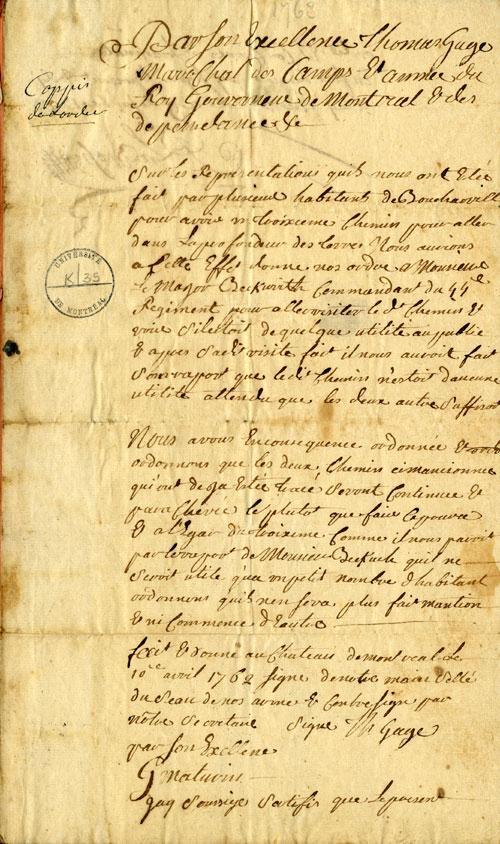 1762
Par son Excellence Thomas Gage
Mareschal des Camps & armée du
Roy Gouverneur de Montreal & des
dependance &c
Coppis
de Lordre
Sur les Representations quils nous ont Etée
fait par plusieur habitants de Bouchervill
pour avoir un troixieme Chemin pour aller
dans La profondeur des terre Nous aurions
a cette Effet donne nos ordre a Monsieur
Le Major Beckwith Commandant du 44e
Regiment pour aller visiter le dt Chemin Et
voir Silestoit de quelque utilité au public
& apres Sa dt visite fait il nous auroit fait
Son rapport que le dt Chemin n'estoit d'aucune
utilité attendu que les deux autre Suffisoit
UNIVERSITÉ
K/35
DE MONTRÉAL
Nous avons En consequence ordonnée &
ordonnons que les deux Chemins cimancionne
qui ont deja Estée tracé Seront Continue Et
parachevee le plutot que faire Ce poura
Et a l'Egar du troixieme Comme il nous paroit
par le rapport de Monsieur Beckwith quil ne
Seroit utile qu'a un petit nombre d'habitant
ordonnons quils nen Sera plus fait mantion
Et ni Commence d'Entre
fait Et donné au Chateau de montreal Le
10e avril 1762 Signe de notre main Sellé
du Seau de nos arme & Contresign par
notre Secretaire Signe Th Gage
par Son Exellence
G maturin
Jay Soussigé Sertifis que Lepresent